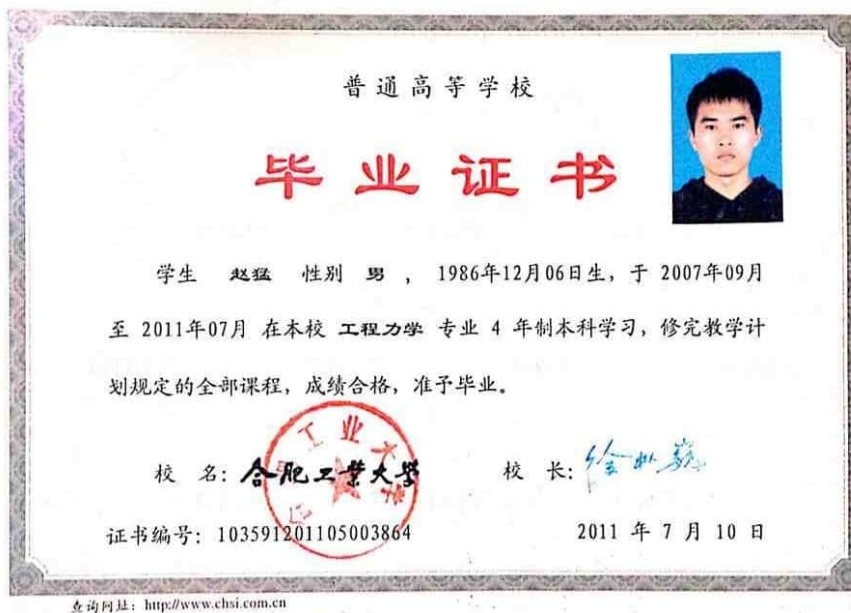 普通高等学校
毕业证书
学生 赵猛 性别 男 ， 1986年12月06日生，于 2007年09月
至 2011年07月 在本校 工程力学 专业 4 年制本科学习，修完教学计
划规定的全部课程，成绩合格，准予毕业。
校 名：合肥工业大学 校 长：
证书编号：103591201105003864 2011 年 7 月 10 日
查询网址：http://www.chsi.com.cn